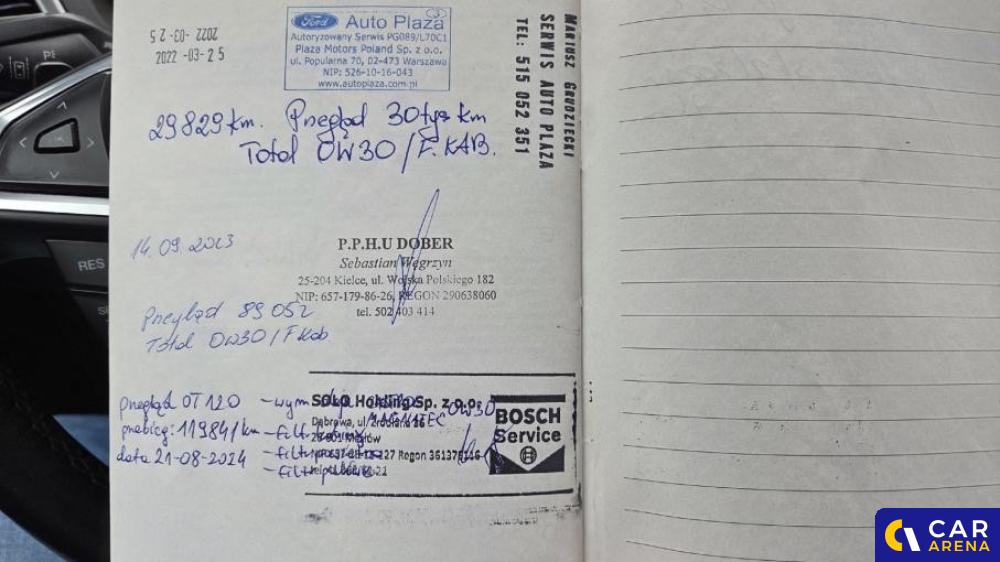 2022 -03- 25
2022 -03- 25
Ford Auto Plaza
Autoryzowany Serwis PG089/L70C1
Plaza Motors Poland Sp. z o.o.
ul. Popularna 70, 02-473 Warszawa
NIP: 526-10-16-043
www.autoplaza.com.pl
MARIUSZ GRUDZIECKI
SERWIS AUTO PLAZA
TEL: 515 052 351
29829 km. Przegląd 30tys km
Total 0W30/F.KAB.
14.09.2023
P.P.H.U DOBER
Sebastian Węgrzyn
25-204 Kielce, ul. Wojska Polskiego 182
NIP: 657-179-86-26, REGON 290638060
tel. 502 403 414
Przegląd 89 052
Total 0W30/F Kab
przegląd OT 120 - wym
MAGNATEC 0W30
przebieg: 119841 km - filtr
data 21-08-2024 - filtr
- filtr
SOLO Holding Sp. z o.o.
Dąbrowa, ul.
Regon
BOSCH
Service
RES
CAR
ARENA